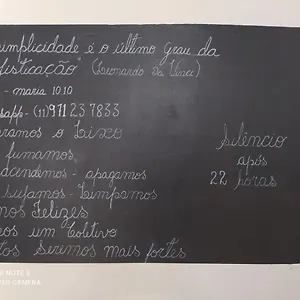 simplicidade é o último Grau da
fisticação" (Leonardo Da Vinci)
- maria 10.10
sapp - (11) 971237833
ramos o Lixo
fumamos
acendemos - apagamos
sujamos - Limpamos
mos Felizes
os um Coletivo
tos Seremos mais fortes
Silêncio
após
22 horas